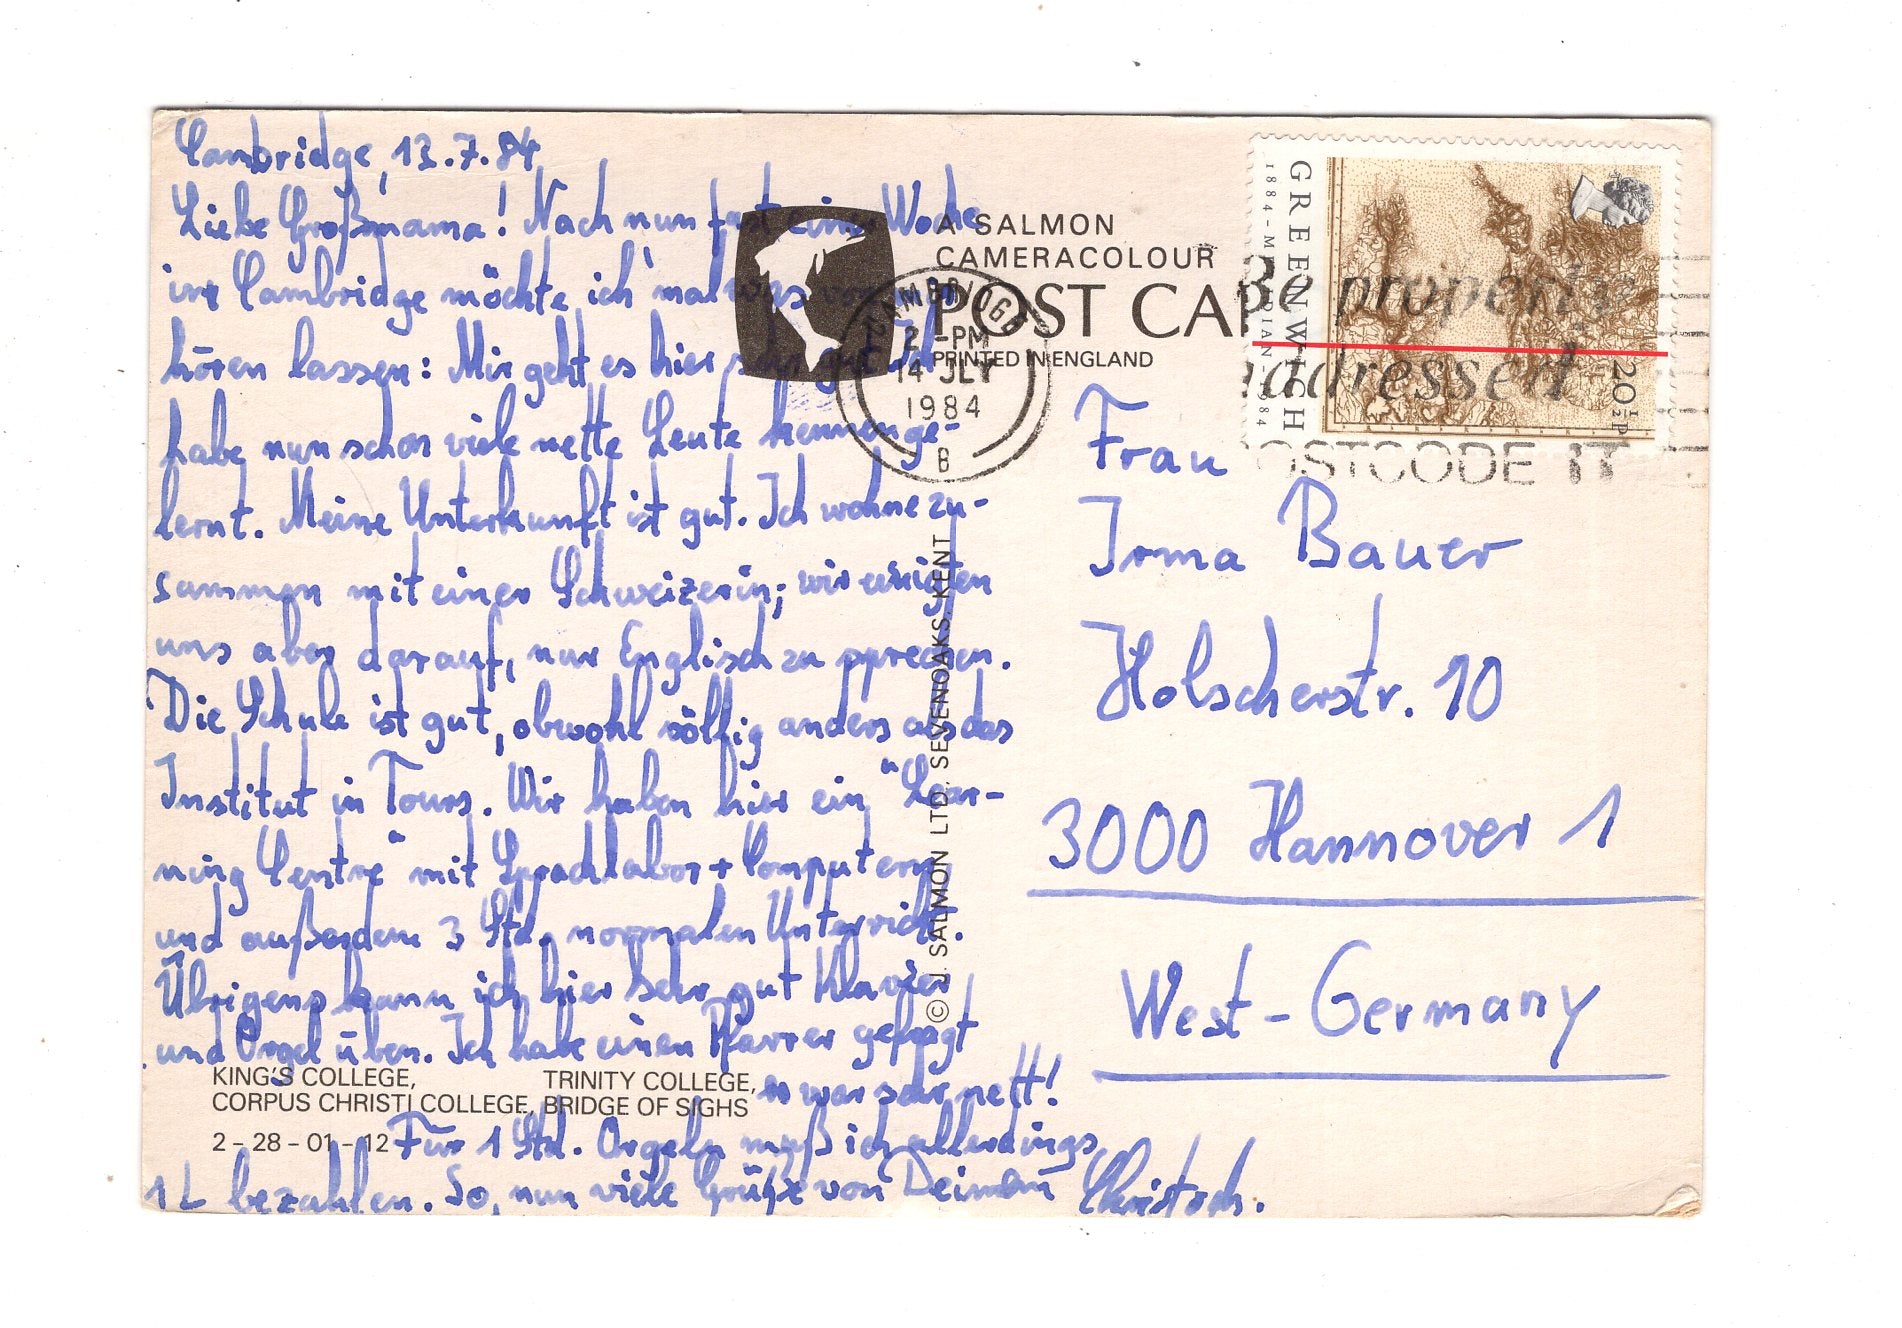 Cambridge, 13.7.84
Liebe Großmama! Nach nun fast einer Woche
in Cambridge möchte ich mal was von mir
hören lassen: Mir geht es hier sehr gut. Ich
habe nun schon viele nette Leute kennenge-
lernt. Meine Unterkunft ist gut. Ich wohne zu-
sammen mit einer Schweizerin; wir einigten
uns aber darauf, nur Englisch zu sprechen.
Die Schule ist gut, obwohl völlig anders als das
Institut in Tours. Wir haben hier ein "Lear-
ning Centre" mit Sprachlabor + Computern
und außerdem 3 Std. normalen Unterricht.
Übrigens kann ich hier sehr gut Klavier
und Orgel üben. Ich habe einen Pfarrer gefragt
er war sehr nett!
Für 1 Std. Orgeln muß ich allerdings
1 L bezahlen. So, nun viele Grüße von Deinem
KING'S COLLEGE, TRINITY COLLEGE,
CORPUS CHRISTI COLLEGE, BRIDGE OF SIGHS
2-28-01-12
A SALMON
CAMERACOLOUR
POST CAR
PRINTED IN ENGLAND
© J. SALMON LTD, SEVENOAKS, KENT
CAMBRIDGE
2 -PM
14 JLY
1984
B
Be properly
addressed
POSTCODE IT
GREENWICH
1884-MERIDIAN-1984
20½P
Frau
Irma Bauer
Holscherstr. 10
3000 Hannover 1
West-Germany